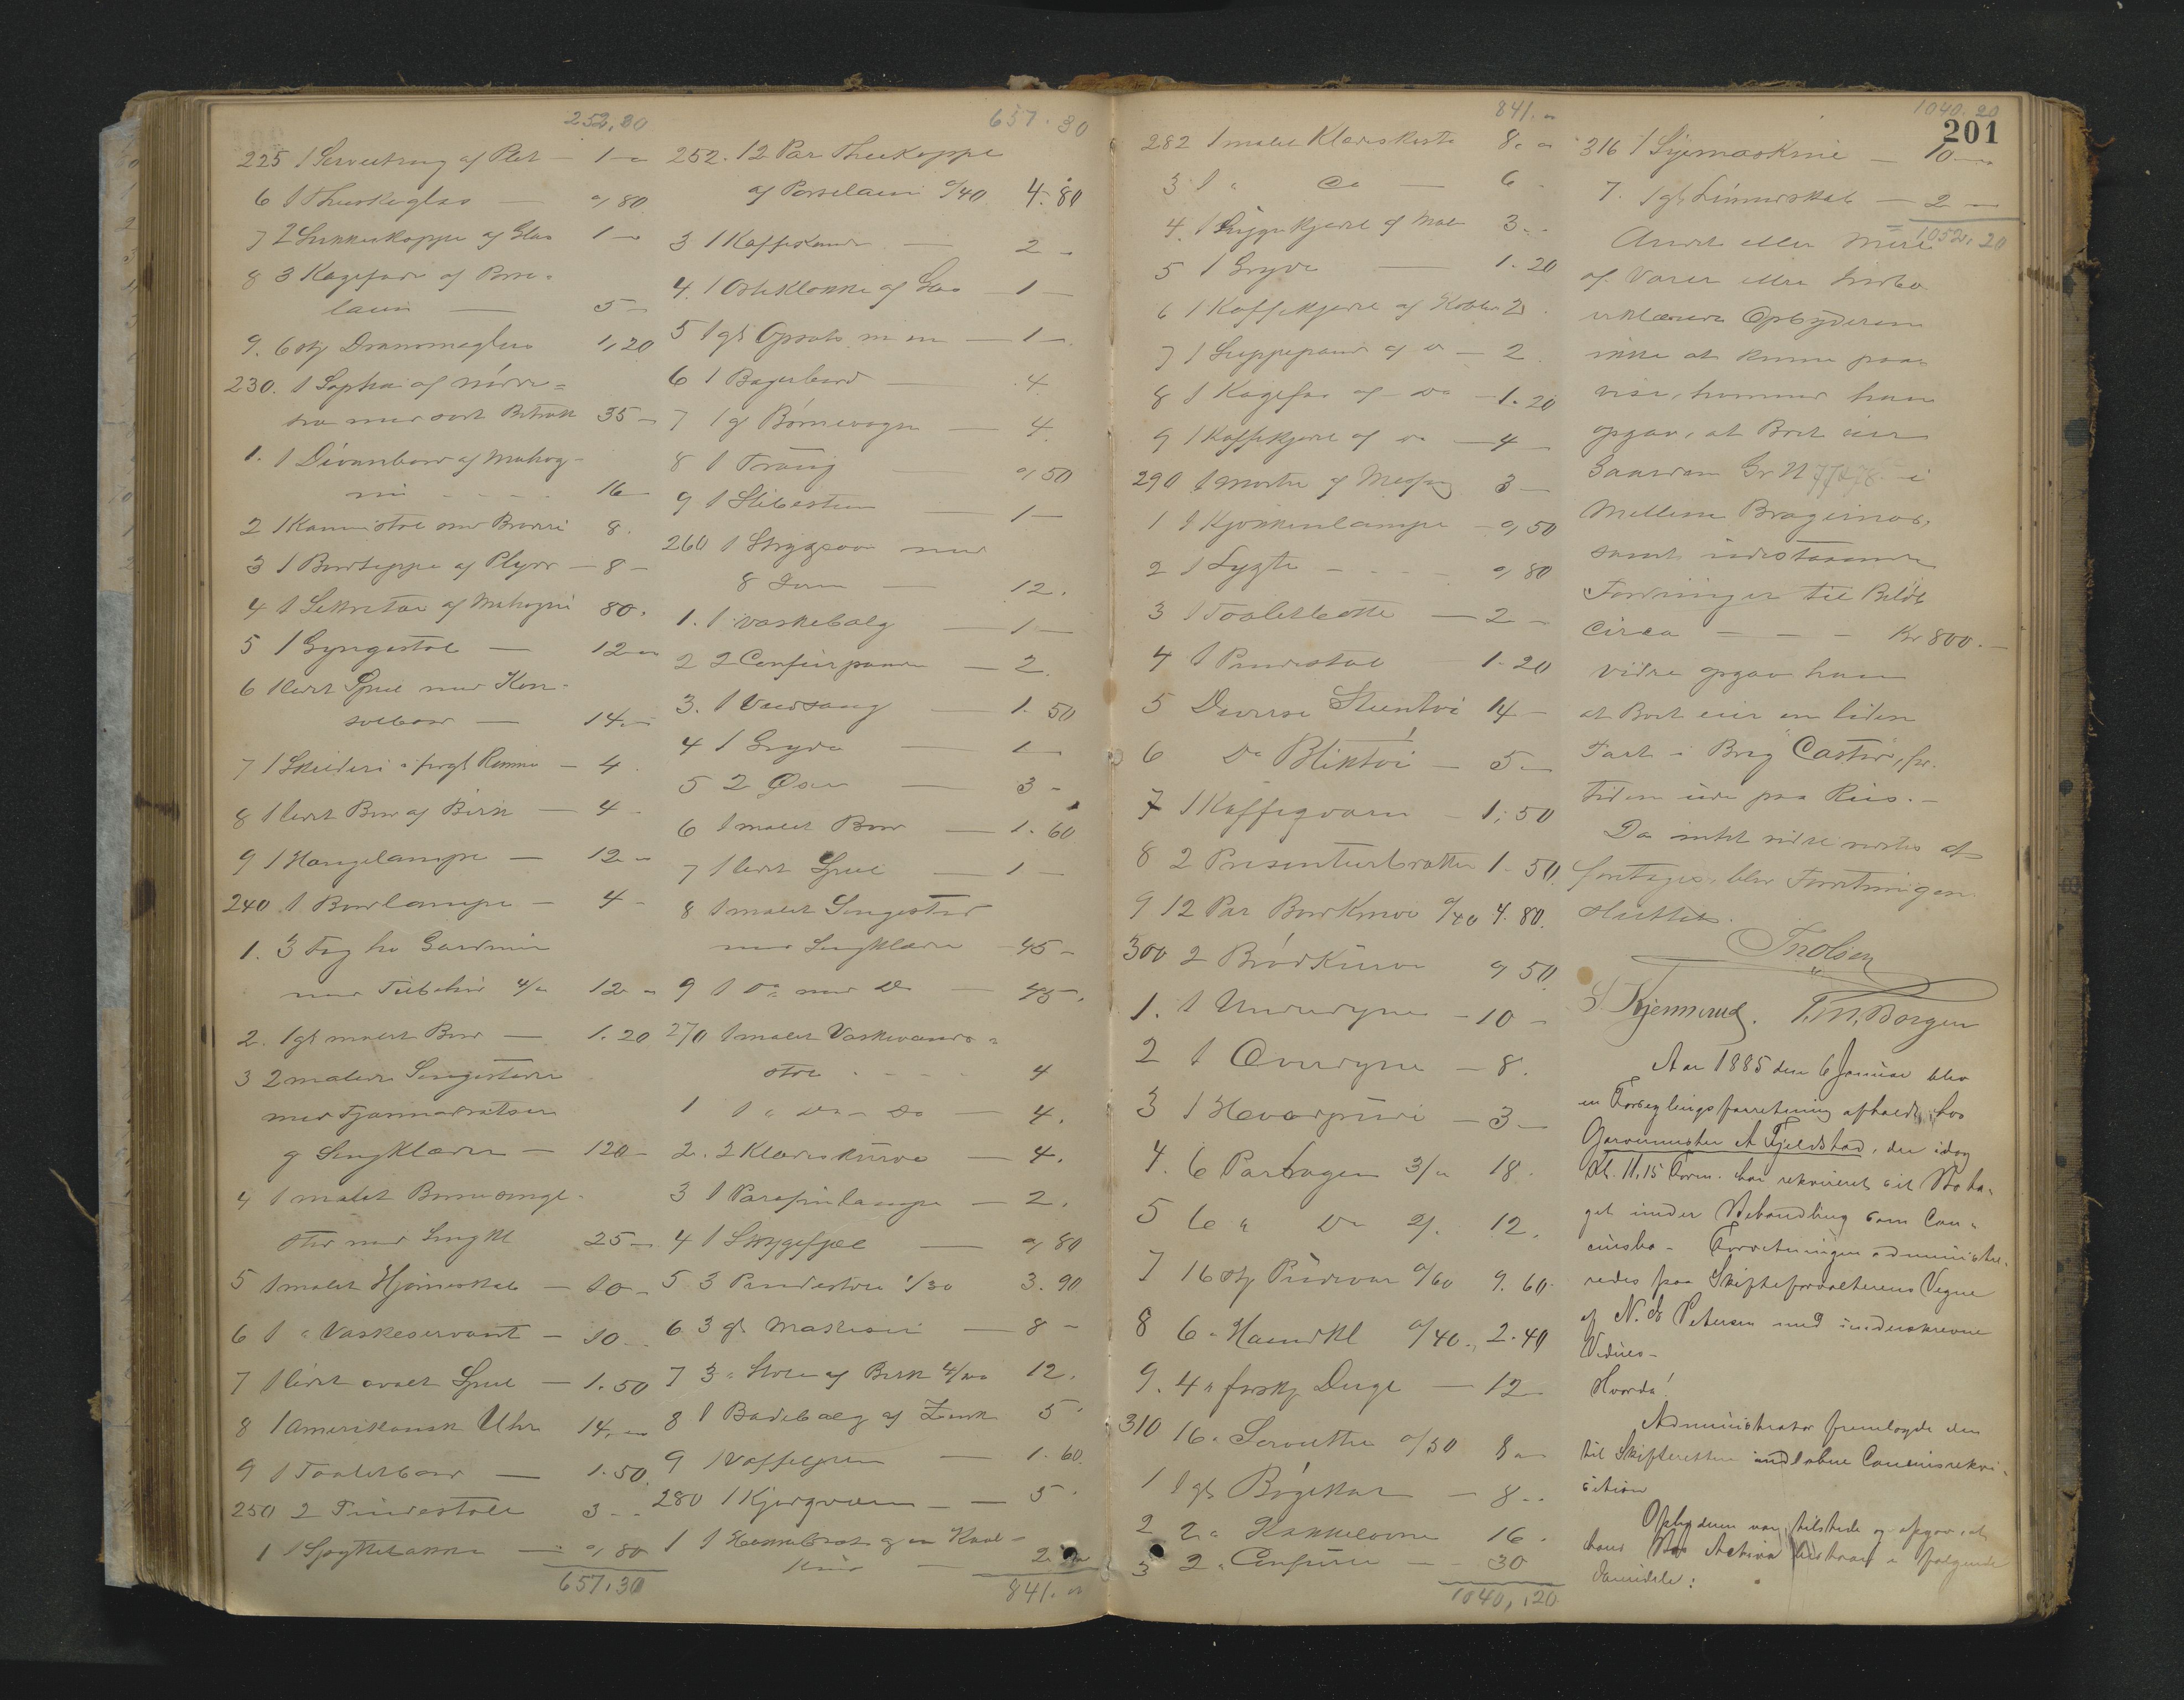 252,30
225 1 Servietring af Plet — 1 –
6 1 Theskeglas — " 80
7 2 Sukkerkopper af Glas 1 –
8 3 Kagefade af Porse-
lain — 5 –
9. 6 stk Dramsglas 1,20
230. 1 Sopha af
med sort Betræk 35 –
1. 1 Divanbord af Mahog-
ni 16 –
2 1 Karmstol med Broderi 8.
3 1 Bordteppe af Plyds — 8 –
4 1 Sekretær af Mahogni 80.
5 1 Gyngestol — 12 –
6 1 lidet Speil med Kon-
solbord — 14 –
7 1 Skilderi i forgt Ramme — 4
8 1 lidet Bord af Birk — 4 –
9 1 Hængelampe — 12 –
240 1 Bordlampe — 4 –
1. 3 Fag hv Gardiner
med Tilbehør 4/" 12 –
2. 1 gl malet Bord — 1. 20
3 2 malede Sengesteder
med Fjærmadratser
g Sengklæder — 120 –
4 1 malet Barnesenge-
sted med Sengkl 25 –
5 1 malet Hjørneskab — 10 –
6 1 " Vaskeservant — 10 –
7 1 lidet ovalt Speil — 1. 50
8 1 Amerikansk Uhr 14, –
9 1 Toiletbord — 1. 50
250 2 Pindestole 3 –
1 1 Spyttebakke — " 80
657,30
657. 30
252. 12 Par Theekopper
af Porselain "/40 4. 80
3 1 Kaffekande — 2 –
4. 1 Osteklokke af Glas — 1 –
5 1 gl Opsats m m — 1 –
6 1 Bagerbord — 4
7 1 gl Børnevogn — 4
8 1 — " 50
9 1 — 1 –
260 1 Strygeovn med
8 Jern — 12.
1. 1 Vaskebalg — 1 –
2 2 — 2.
3. 1 Vedsaug — 1. 50
4 1 Gryde — 1 –
5 2 Øser — 3 –
6 1 malet Bord — 1. 60
7 1 lidet Speil — 1 –
8 1 malet Sengested
med Sengklæder — 45 –
9 1 Do med Do — 45 –.
270 1 malet Vaskevands-
stol 4
1 1 " Do – Do — 4.
2. 2 Klædeskurve — 4.
3 1 Parafinlampe — 2.
4 1 Strygefjæl — " 80
5 3 Pindestole 1/30 3. 90
6 3 gl — 8 –
7 3 " Stole af Birk 4/00 12.
8 1 Badebalg af Zink 5 –
9 1 Vaffeljern — 1. 60.
280 1 Kjødqværn — 5 –
1 1 Hakkebræt g en Kaal-
kniv — 2. –
841. –
841. –
282 1 malet Klædeskiste 8. –
3 1 " Do — 6 –
4. 1 Bryggekjedel af Mal 3 –
5 1 Gryde — 1. 20
6 1 Kaffekjedel af Kobber 2
7 1 Suppepande af Do — 2
8 1 Kagefad af Do — 1. 20
9 1 Kaffekjedel af Do — 4 –
290 1 Morter af Messing 3 –
1 1 Kjøkkenlampe — " 50
2 1 Lygte — " 80
3 1 Toiletbøtte — 2 –
4 1 Pindestol 1. 20
5 Diverse Steentøi 14 –
6 Do Bliktøi — 5 –
7 1 Kaffeqværn — 1; 50
8 2 Presenteerbrætter 1. 50
9 12 Par Bordknive "/40 4. 80.
300 2 Brødkurve " 50
1. 1 Underdyne — 10 –
2 1 Overdyne — 8.
3 1 Hovedpude — 3 –
4. 6 Par Lagen 3/" 18.
5 6 " Do 2/. 12.
7 16 stk Pudevar "/60 9. 60
8 6 " Haandkl "/40., 2. 40
9. 4 " forskj Duge — 12
310 16 " Servietter "/50 8 –
1 1 gl — 8 –
2 2 " Kakkelovne 16 –
3 2 " — 30
1040,,20
1040. 20
201
316 1 Symaskine — 10 –
7. 1 gl Linnedskab — 2 –
1052, 20
Andet eller mere
af Varer eller Indbo
erklærede Opbyderen
ikke at kunne paa-
vise, hvorimod han
opgav, at Boet eier
Gaarden Gr N 77 & 78 – i
Mellem Bragernæs,
samt udestaaende
Fordringer til Beløb
circa — — — Kr 800. –
Videre opgav han
at Boet eier en liden
Part i Brig "Castor", for
Tiden ude paa Reis. –
Da intet videre vides at
foretages, blev Forretningen
sluttet.
Th Olsen
S. Kjennerud. T. M. Borgen
Aar 1885 den 6 Januar blev
en Forseglingsforretning afholdt hos
Garvermester A Fjeldstad, der idag
Kl. 11,15 Form. har rekvireret sit Bo ta-
get under Behandling som Con-
cursbo – Forretningen administre-
redes paa Skifteforvalterens Vegne
af N. Petersen med underskrevne
Vidner –
Hvorda!
Administrator fremlagde den
til Skifteretten indløbne Concursrekvi-
sition
Opbyderen var tilstede og opgav, at
hans Bos Activa bestaar i følgende
Varedele: